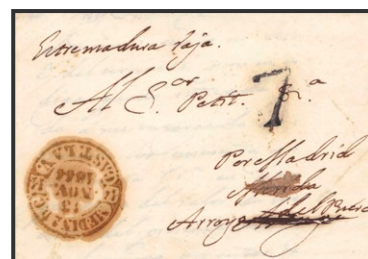 Extremadura baja.
Al S.or Petit. S.a
7
Por Madrid
Merida
Arroyo del Puerco
13
NOV
1844